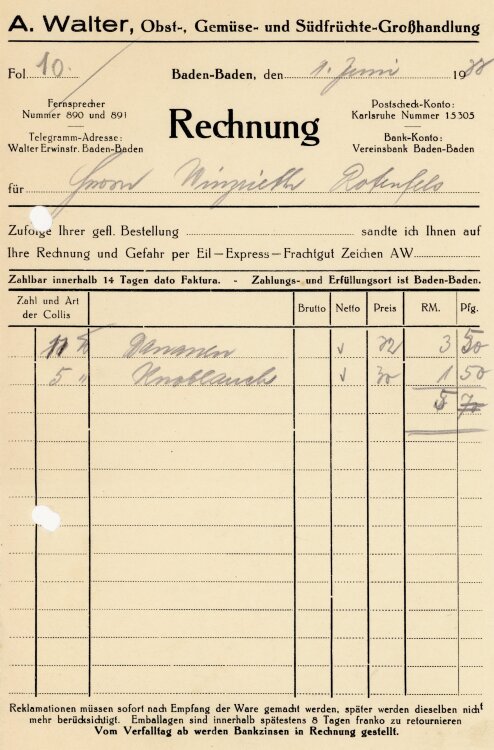 A. Walter, Obst-, Gemüse- und Südfrüchte-Großhandlung
Fol. 10. Baden-Baden, den 1. Juni 1938
Fernsprecher
Nummer 890 und 891
Telegramm-Adresse:
Walter Erwinstr. Baden-Baden
Rechnung
Postscheck-Konto:
Karlsruhe Nummer 15305
Bank-Konto:
Vereinsbank Baden-Baden
für Herrn Rotenfels
Zufolge Ihrer gefl. Bestellung sandte ich Ihnen auf
Ihre Rechnung und Gefahr per Eil-Express-Frachtgut Zeichen AW
Zahlbar innerhalb 14 Tagen dato Faktura. - Zahlungs- und Erfüllungsort ist Baden-Baden.
Zahl und Art der Collis Brutto Netto Preis RM. Pfg.
11 Bananen 32 3 50
5 " Knoblauch 30 1 50
5
Reklamationen müssen sofort nach Empfang der Ware gemacht werden, später werden dieselben nicht
mehr berücksichtigt. Emballagen sind innerhalb spätestens 8 Tagen franko zu retournieren
Vom Verfalltag ab werden Bankzinsen in Rechnung gestellt.